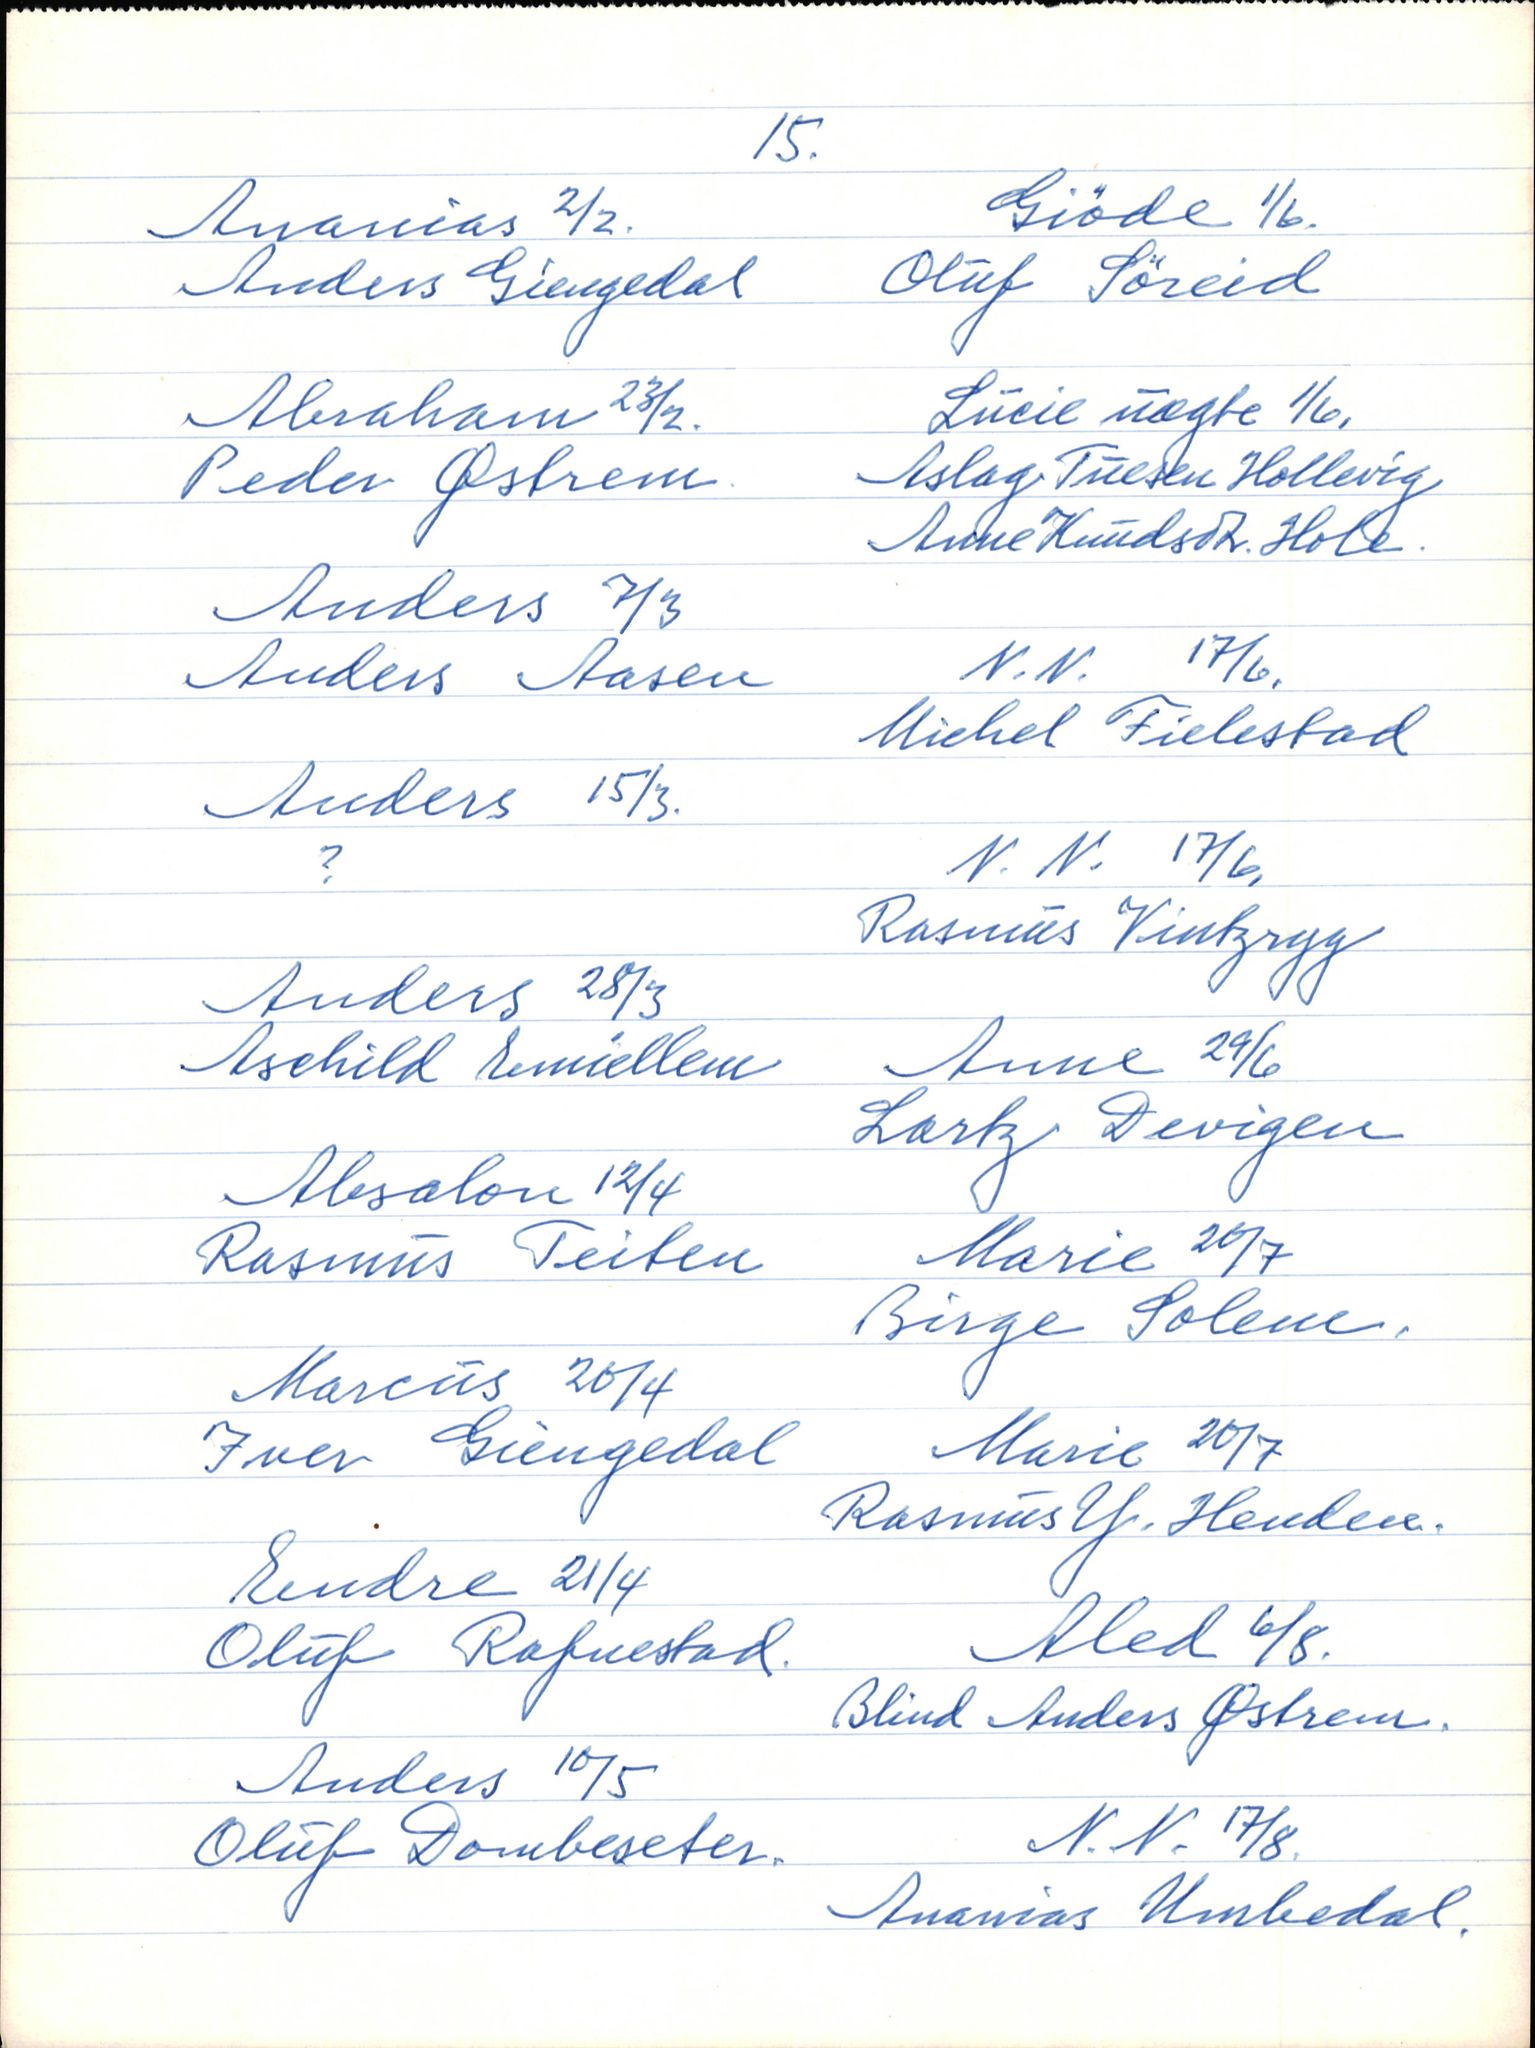 15.
Ananias 2/2.
Anders Giengedal
Abraham 23/2.
Peder Østrem
Anders 7/3
Anders Aasen
Anders 15/3.
?
Anders 28/3
Aschild Emiellem
Absalon 12/4
Rasmus Teiten
Marcus 20/4
Iver Giengedal
Endre 21/4
Oluf Rafnestad.
Anders 10/5
Oluf Dombeseter.
Giöde 1/6.
Oluf Söreid
Lucie uægte 1/6.
Aslag Tuesen Hollevig
Anne Knudsdtr. Hole.
N.N. 17/6.
Michel Fielestad
N.N. 17/6.
Rasmus Vintzryg
Anne 29/6
Lartz Devigen
Marie 20/7
Birge Solem.
Marie 20/7
Rasmus Y. Henden.
Aled 6/8.
Blind Anders Østrem.
N.N. 17/8.
Ananias Urnbedal.